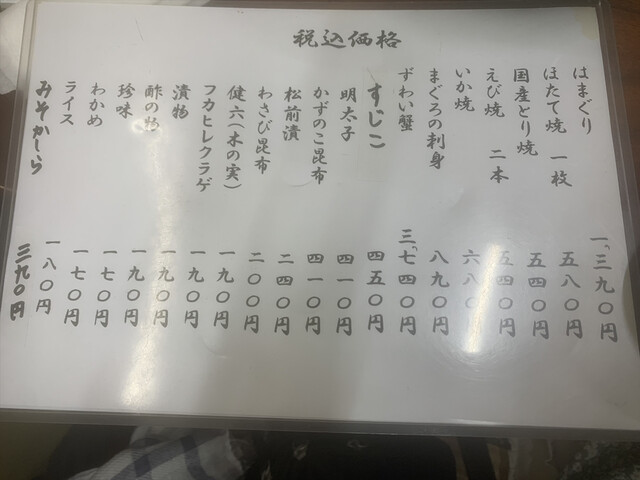 税込価格
はまぐり 一、三九〇円
ほたて焼 一枚 五八〇円
国産とり焼 五四〇円
えび焼 二本 五四〇円
いか焼 六八〇円
まぐろの刺身 八九〇円
ずわい蟹 三、七四〇円
すじこ 四五〇円
明太子 四一〇円
かずのこ昆布 四一〇円
松前漬 二四〇円
わさび昆布 二〇〇円
健六(木の実) 一九〇円
フカヒレクラゲ 一九〇円
漬物 一九〇円
酢の物 一九〇円
珍味 一七〇円
わかめ 一七〇円
ライス 一八〇円
みそかしら 三九〇円